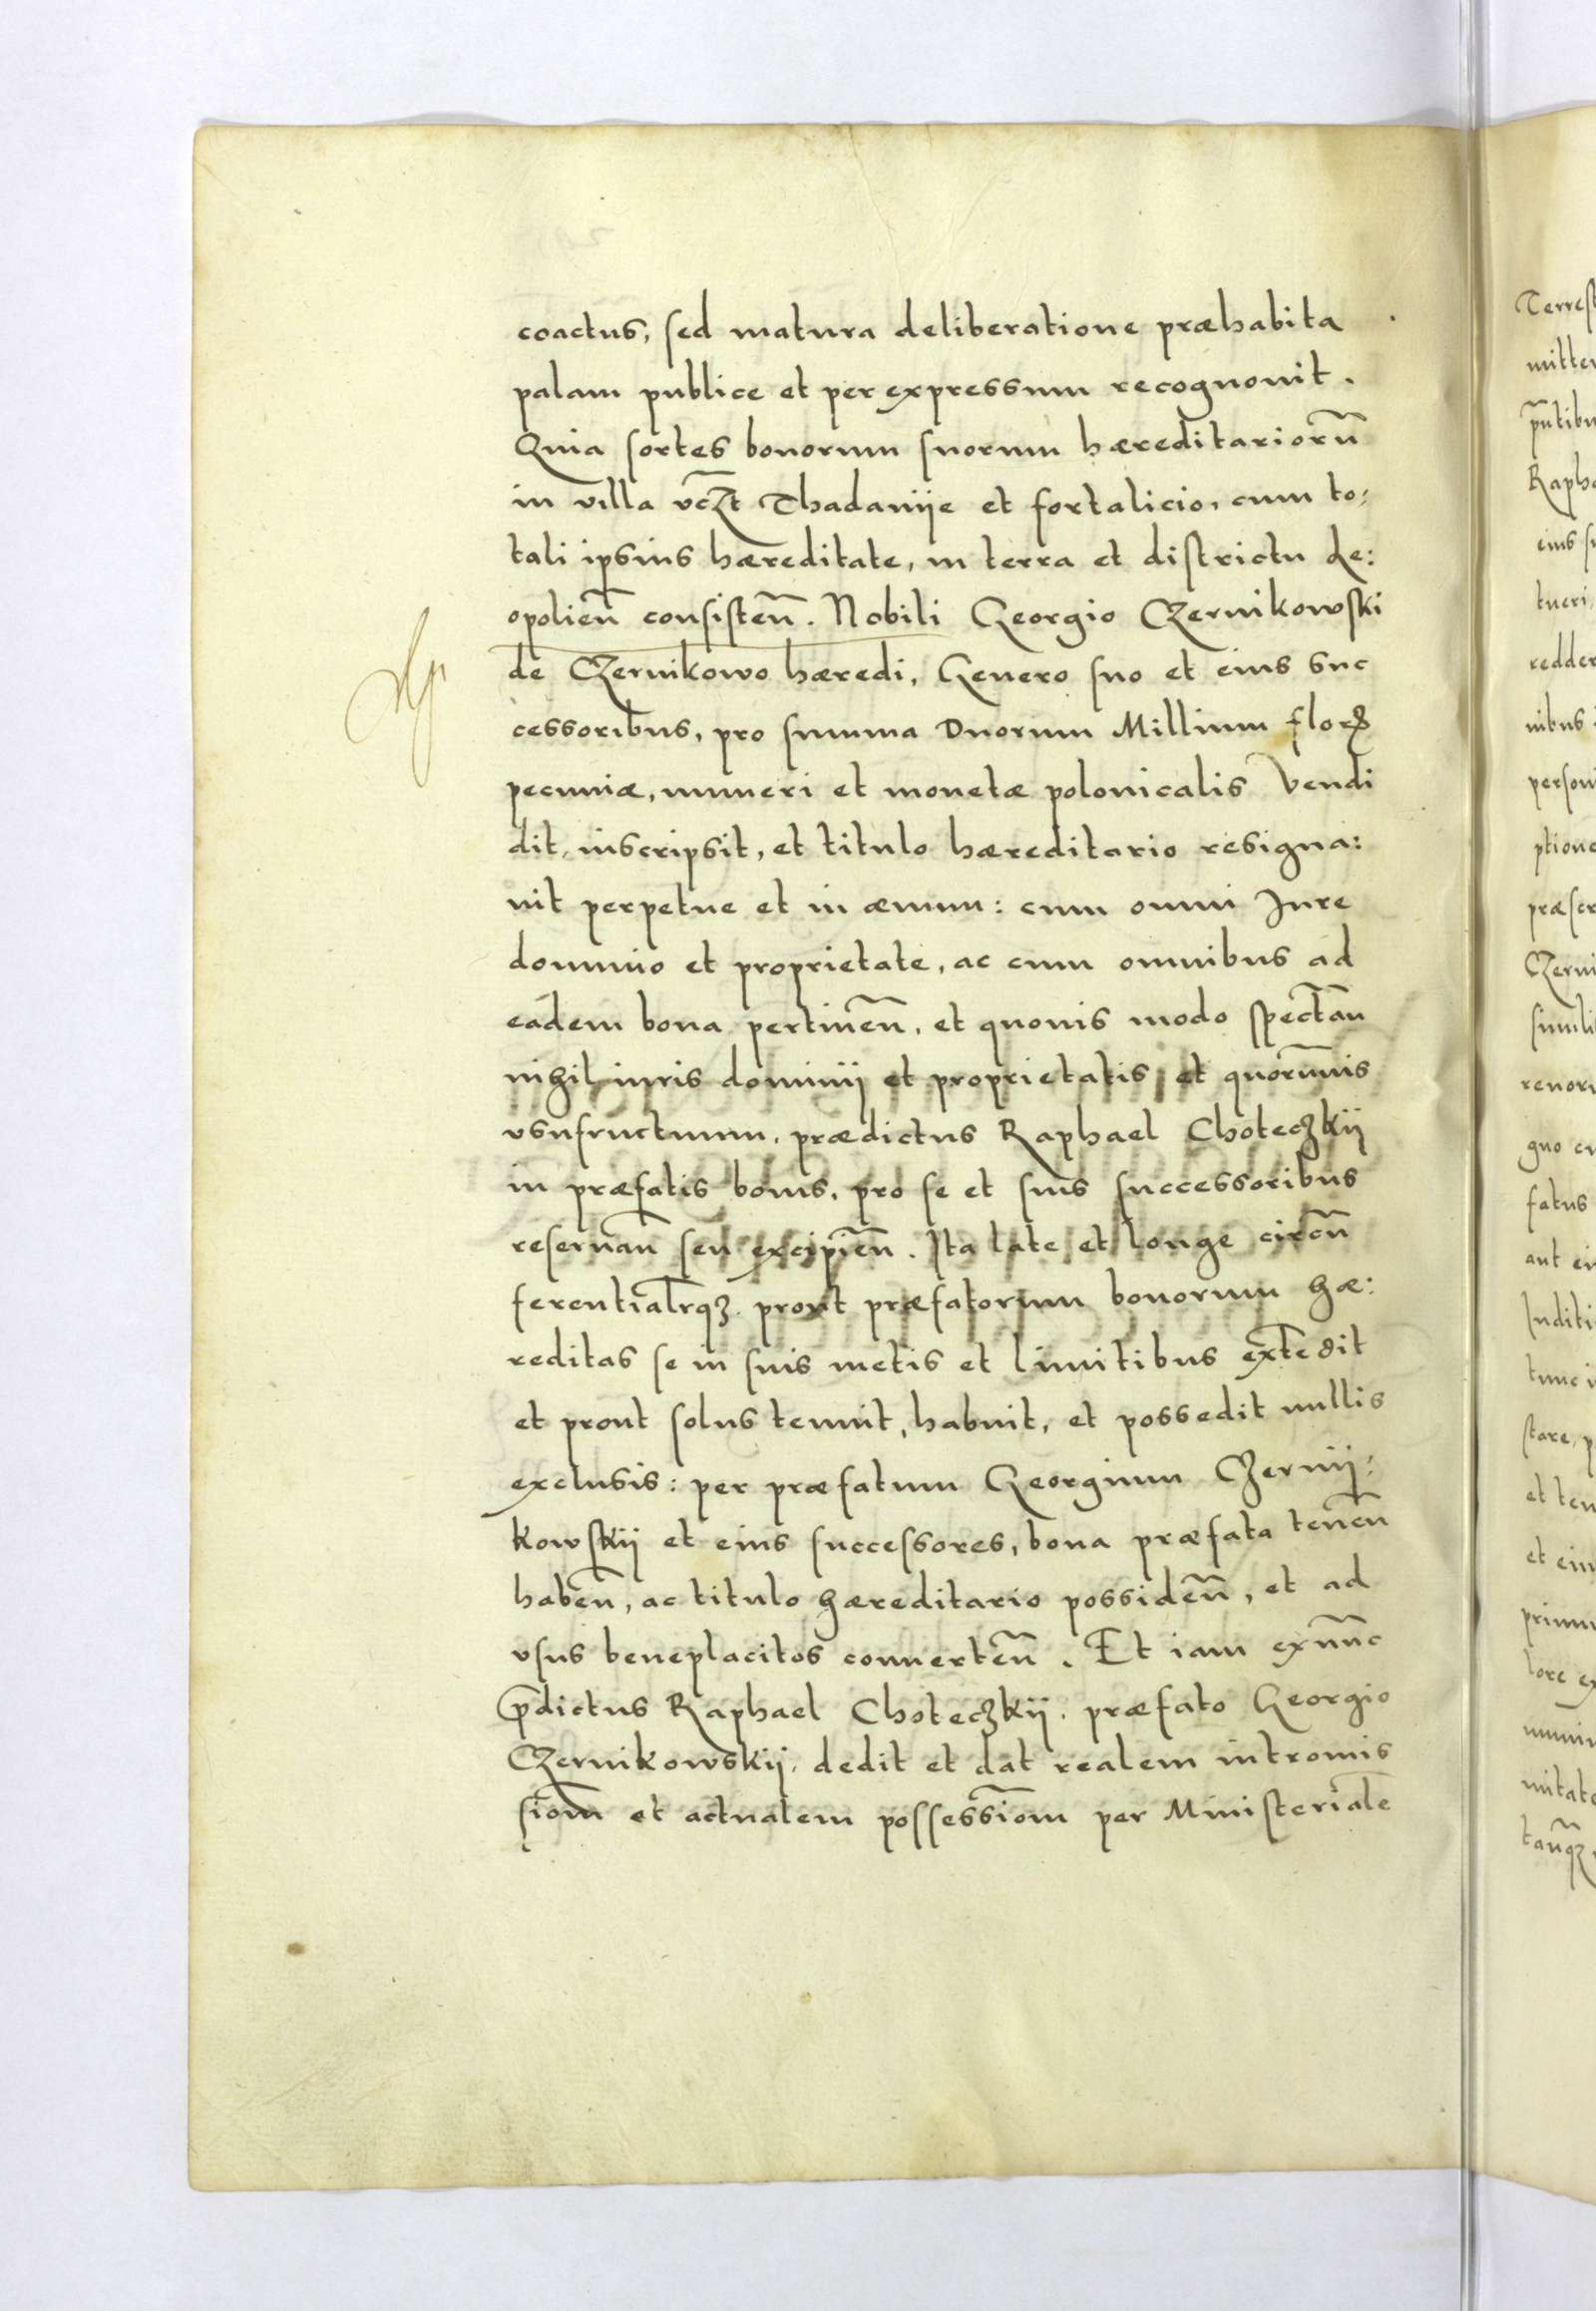 coactus, sed matura deliberatione præhabita
palam publice et per expressum recognouit.
Quia sortes bonorum suorum hæreditariorū
in villa vczt Thadanije et fortalicio, cum to:
tali ipsius hæreditate, in terra et districtu Le:
opolien̄ consisten̄. Nobili Georgio Czernikowski
de Czernikowo hæredi, Genero suo et eius suc
cessoribus, pro summa Duorum Millium floꝝ
pecuniæ, numeri et monetæ polonicalis vendi
dit, inscripsit, et titulo hæreditario resigna:
uit perpetue et in æuum: cum omni Jure
dominio et proprietate, ac cum omnibus ad
eadem bona pertinen̄, et quouis modo spectan̄
nihil iuris dominij et proprietatis et quorumuis
vsufructuum, prædictus Raphael Choteczkij
in præfatis bonis, pro se et suis successoribus
reseruan̄ seu excipien̄. Ita late et longe circū
ferentialrqꝫ prout præfatorum bonorum hæ:
reditas se in suis metis et limitibus extēdit
et prout solus tenuit, habuit, et possedit nullis
exclusis: per præfatum Georgium Czernij:
kowskij et eius successores, bona præfata tenen̄
haben̄, ac titulo hæreditario possiden̄, et ad
vsus beneplacitos conuerten̄. Et iam exnunc
p̄dictus Raphael Choteczkij, præfato Georgio
Czernikowskij, dedit et dat realem intromis
siom̄ et actualem possessiom̄ per Ministerialē
Terrest
mitte
pn̄tibu
Rapha
eius su
tueri,
redder
nibus
person
ptione
præscr
Czerni
simili
renoru
gno
fatus
aut ei
Juditi
tunc i
stare, p
et ten
et eiu
primu
lore ex
muni
mitate
tanqꝫ